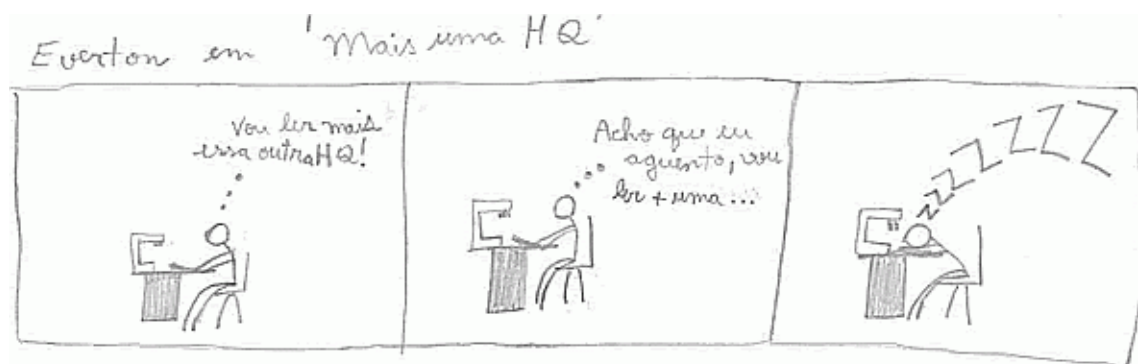 Everton em 'Mais uma HQ'
Vou ler mais
essa outra HQ!
Acho que eu
aguento, vou
ler + uma...
zzzzZZZZZ